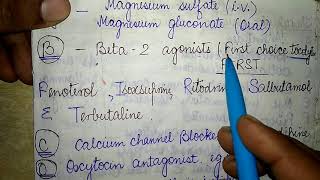 - Magnesium sulfate (i.v.)
Magnesium gluconate (Oral)
B - Beta - 2 agonists (First choice
FIRST.
Fenoterol, Isoxsuprine, Ritodrine, Salbutamol
& Terbutaline.
C Calcium channel Blocke
D Oxcytocin antagonist. eg.